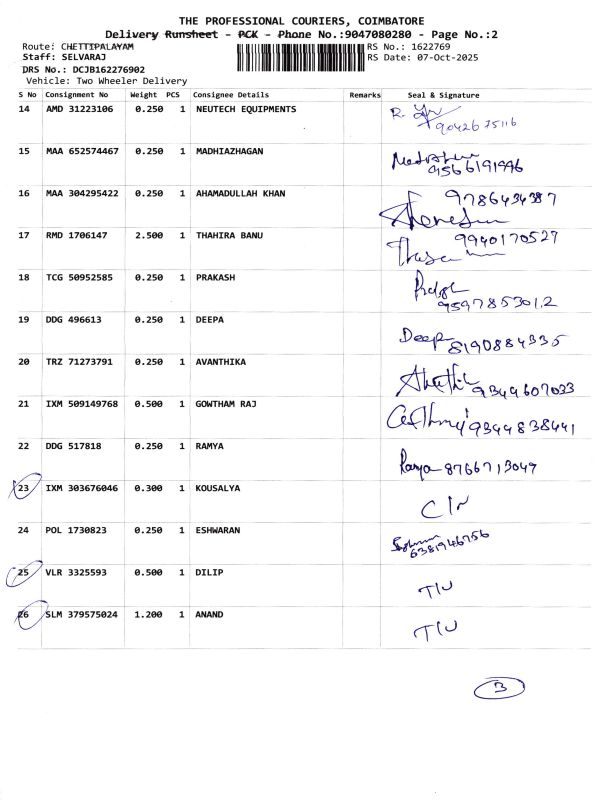 THE PROFESSIONAL COURIERS, COIMBATORE
Delivery Runsheet - PCK - Phone No.:9047080280 - Page No.:2
Route: CHETTIPALAYAM RS No.: 1622769
Staff: SELVARAJ RS Date: 07-Oct-2025
DRS No.: DCJB162276902
Vehicle: Two Wheeler Delivery
S No Consignment No Weight PCS Consignee Details Remarks Seal & Signature
14 AMD 31223106 0.250 1 NEUTECH EQUIPMENTS R.
9042675116
15 MAA 652574467 0.250 1 MADHIAZHAGAN
9566191446
16 MAA 304295422 0.250 1 AHAMADULLAH KHAN 9786434387
17 RMD 1706147 2.500 1 THAHIRA BANU 9940170527
18 TCG 50952585 0.250 1 PRAKASH
9597853012
19 DDG 496613 0.250 1 DEEPA Deepa 8190884335
20 TRZ 71273791 0.250 1 AVANTHIKA 9344607033
21 IXM 509149768 0.500 1 GOWTHAM RAJ 9344838441
22 DDG 517818 0.250 1 RAMYA Ramya 8766713049
23 IXM 303676046 0.300 1 KOUSALYA C/N
24 POL 1730823 0.250 1 ESHWARAN
6381946756
25 VLR 3325593 0.500 1 DILIP T/U
26 SLM 379575024 1.200 1 ANAND T/U
3